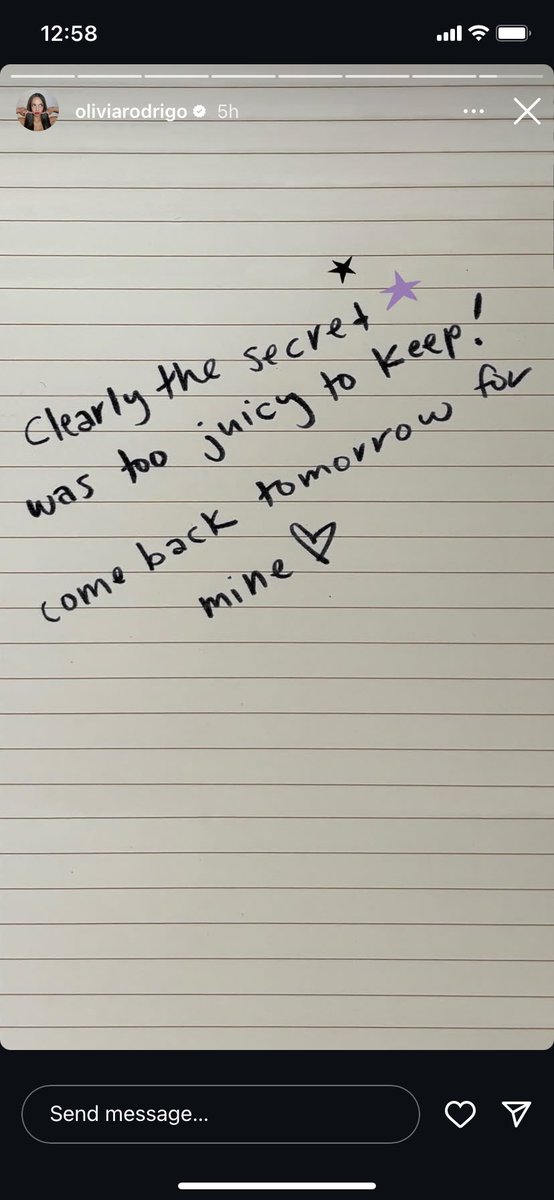 12:58
oliviarodrigo 5h
Clearly the secret
was too juicy to keep!
come back tomorrow for
mine
Send message...